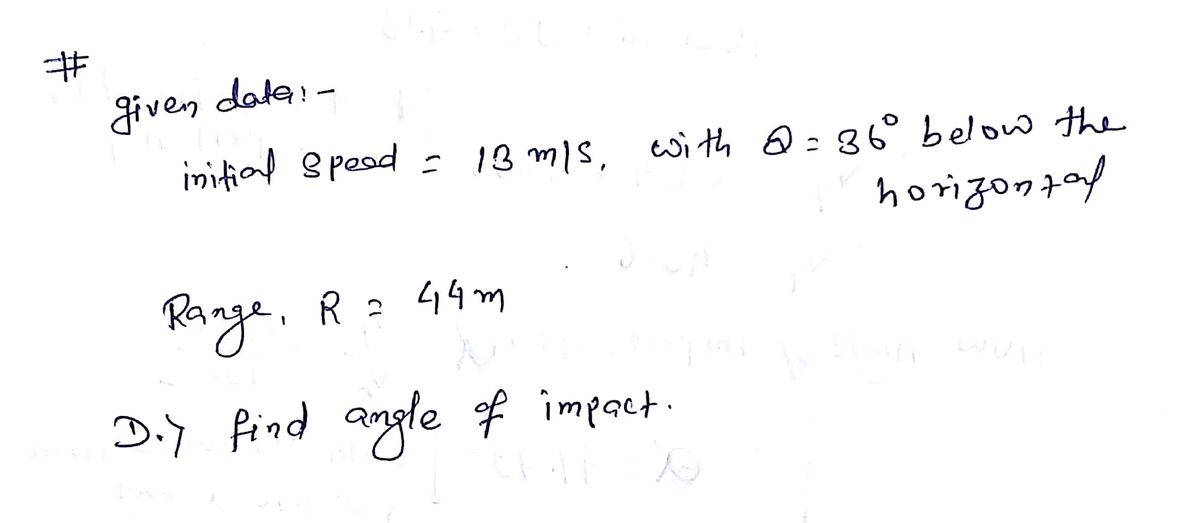 #
given data:-
initial speed = 13 m/s, with θ = 36° below the
horizontal
Range, R = 44m
D.) find angle of impact.